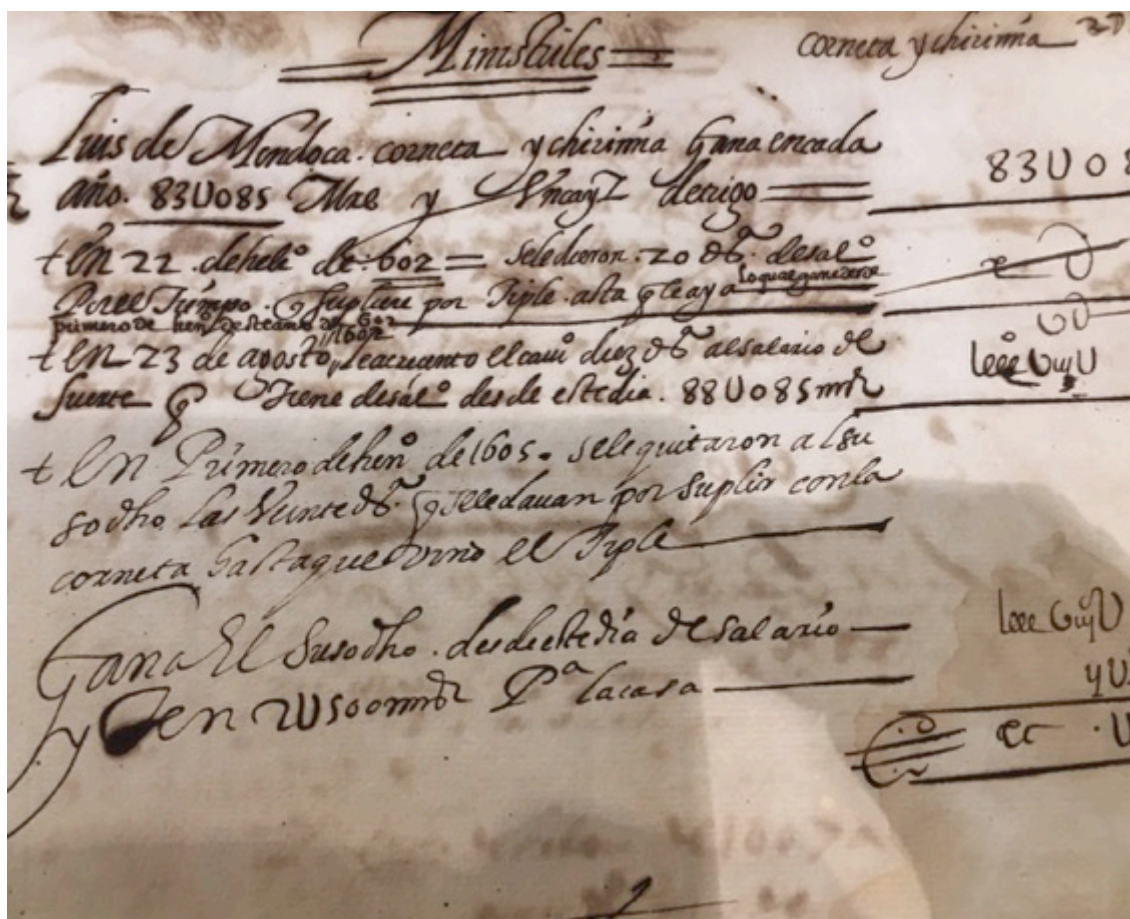 Ministriles
corneta y chirimia
Luis de Mendoca. corneta y chirimia Gana encada
año. 83U085 Mrs y Vncayz detrigo
83U08
+ En 22 .dehen.º de .602 = seledieron .20 ds. desal.º
Porel Tiempo. q Supliere por Tiple. asta q leaya
loqual ganedesde
primero de hen.º desteaño de 602
+ En 23 de agosto leacrecento elcau.º diez ds al salario de
1602
suerte q Tiene desal.º desde estedia. 88U085 mrs
+ En Primero dehen.º de 1605. selequitaron alsu
sodho. Las Veinte ds. q seledauan por suplir conla
corneta hastaque vino el Tiple
Gana El Susodho. desde estedia de salario
y en 2U500 mrs P.ª lacasa